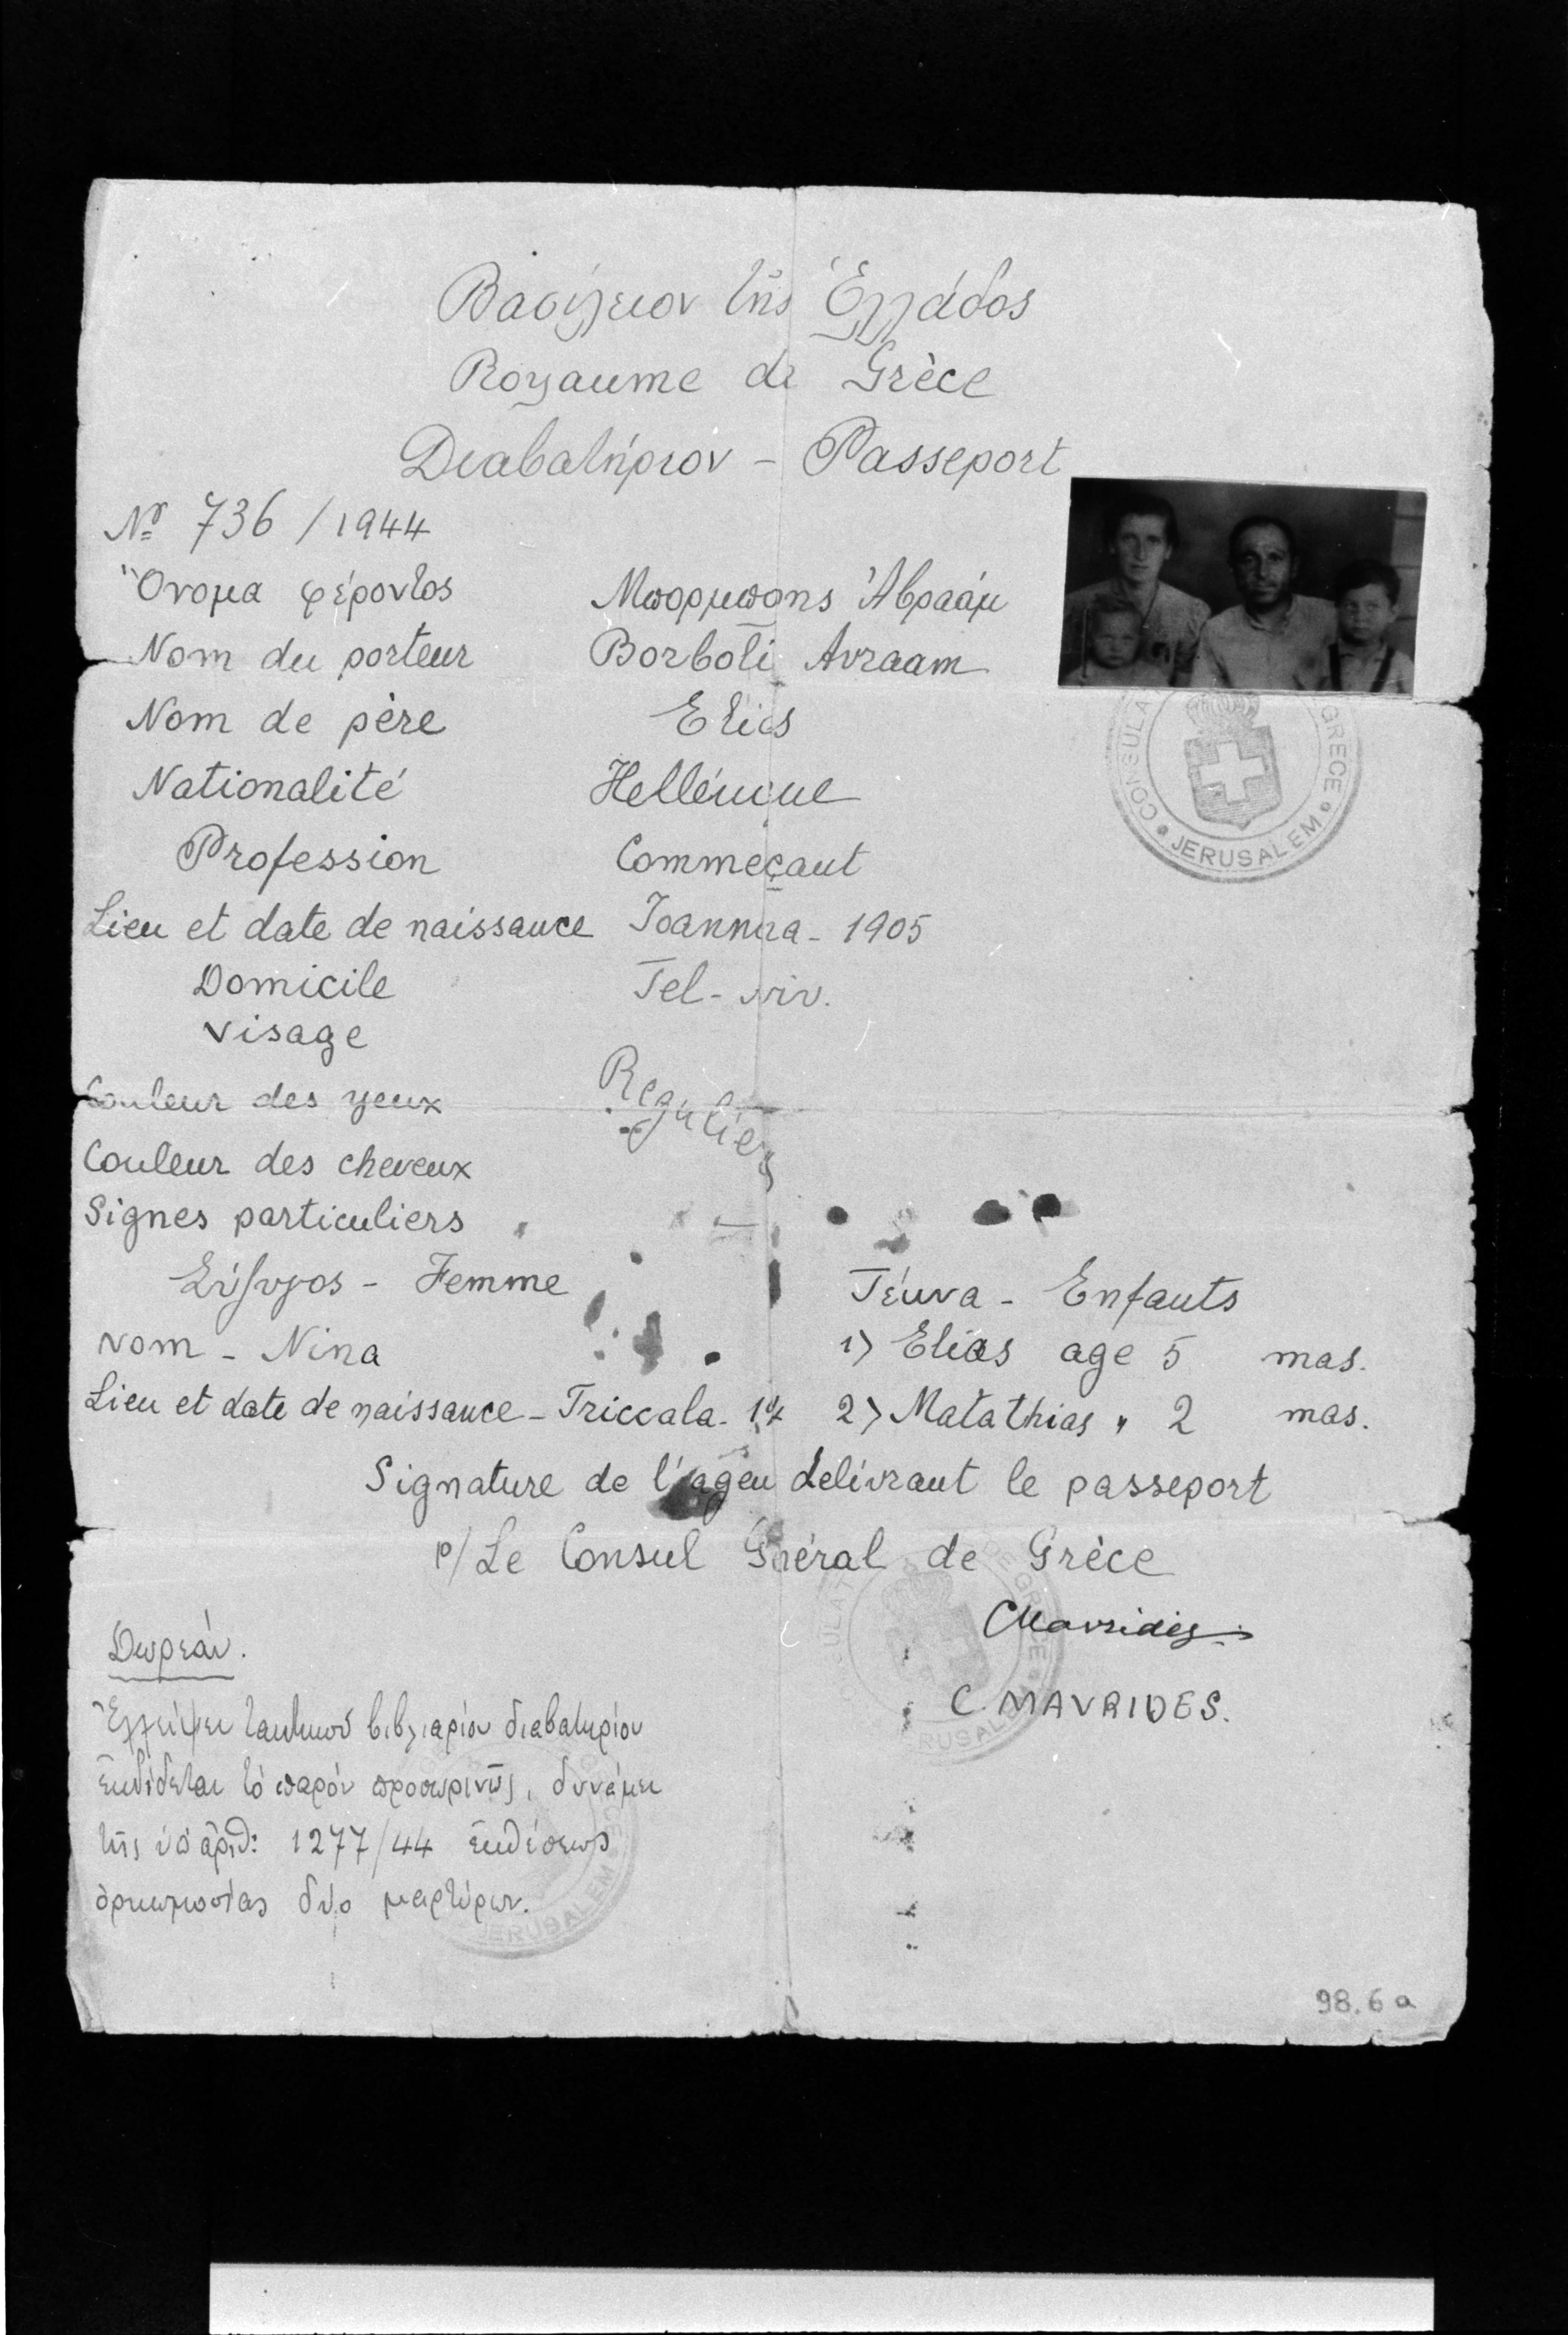 Βασίλειον τῆς Ἑλλάδος
Royaume de Grèce
Διαβατήριον – Passeport
Nº 736 / 1944
Ὄνομα φέροντος Μπορμπολης Ἀβραάμ
Nom du porteur Borboli Avraam
Nom de père Elias
Nationalité Hellénique
Profession Commeçant
Lieu et date de naissance Ioannina - 1905
Domicile Tel-Aviv.
Visage
Couleur des yeux Regulier
Couleur des cheveux
Signes particuliers
Σύζυγος - Femme Τέκνα - Enfants
Nom - Nina 1) Elias age 5 mas.
Lieu et date de naissance - Triccala - 2) Matathias " 2 mas.
Signature de l'agen delivrant le passeport
p/ Le Consul Général de Grèce
CMavrides
C. MAVRIDES.
Δωρεάν.
Ἐλλείψει τακτικοῦ βιβλιαρίου διαβατηρίου
ἐκδίδεται τό παρόν προσωρινῶς, δυνάμει
τῆς ὑπ' ἀριθ: 1277/44 ἐκθέσεως
ὁρκωμοσίας δύο μαρτύρων.
CONSULA GRECE • JERUSALEM •
JERUSALEM
98.6a